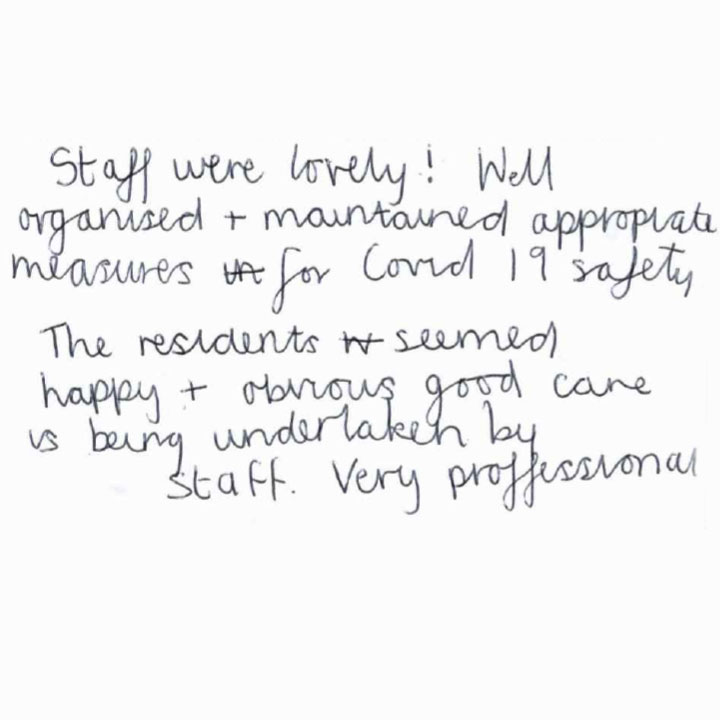 Staff were lovely! Well
organised + maintained appropriate
measures for Covid 19 safety
The residents seemed
happy + obvious good care
is being undertaken by
staff. Very proffessional